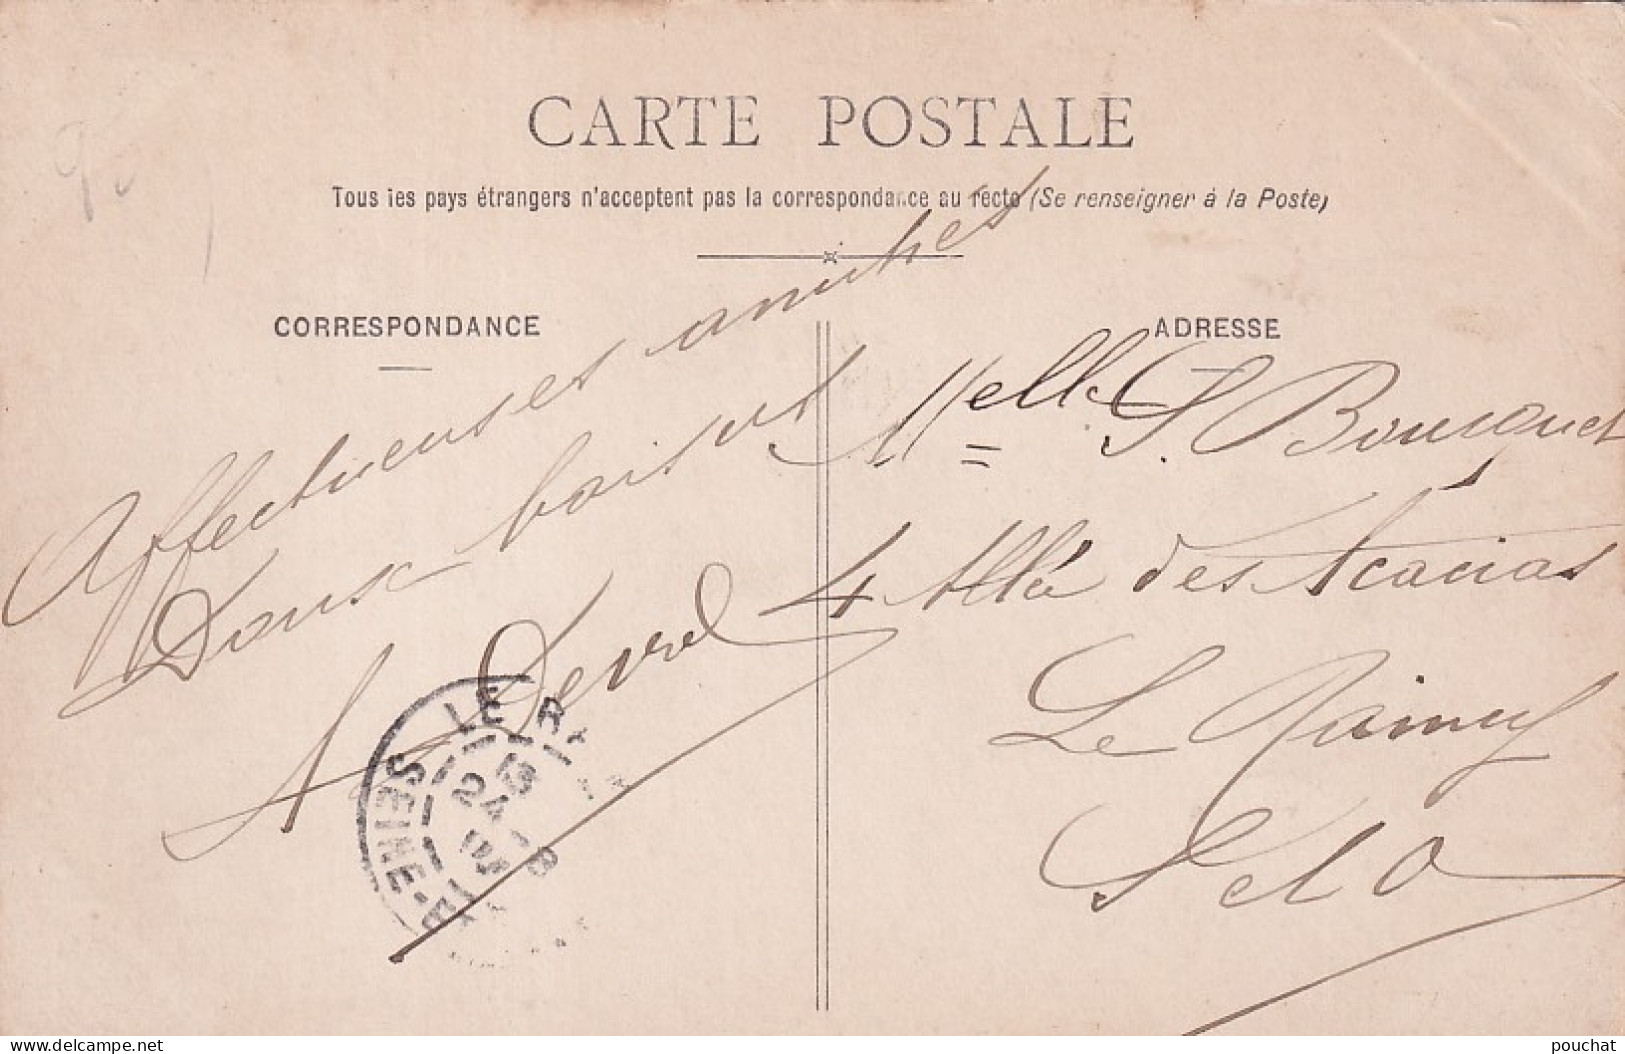 CARTE POSTALE
Tous les pays étrangers n'acceptent pas la correspondance au recto (Se renseigner à la Poste)
CORRESPONDANCE
Affectueuses amitiés
Doux baisers
ADRESSE
Melle S. Bousquet
4 Allée des Acacias
Le Raincy
S et O
LE RA
SEINE-
24
delcampe.net
pouchat